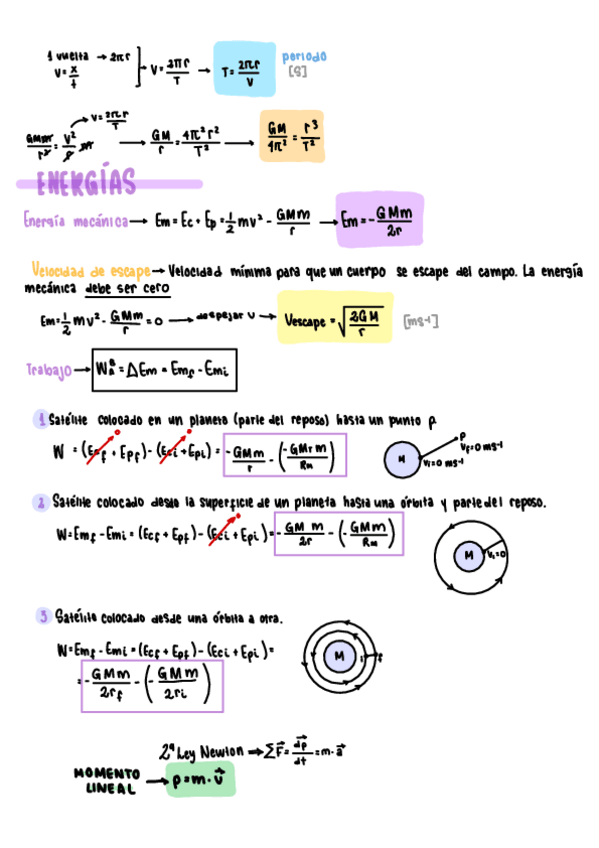 1 vuelta → 2πr
V = x/t
V = 2πr/T → T = 2πr/V
periodo
[s]
V = 2πr/T
GMm/r² = V²/r m → GM/r = 4π²r²/T² → GM/4π² = r³/T²
ENERGÍAS
Energía mecánica → Em = Ec + Ep = 1/2 mv² - GMm/r → Em = - GMm/2r
Velocidad de escape → Velocidad mínima para que un cuerpo se escape del campo. La energía
mecánica debe ser cero
Em = 1/2 mv² - GMm/r = 0 → despejar v → Vescape = √(2GM/r) [ms⁻¹]
Trabajo → W_A^B = ΔEm = Emf - Emi
1 Satélite colocado en un planeta (parte del reposo) hasta un punto P.
W = (Ecf + Epf) - (Eci + Epi) = - GMm/r - (- GMTm/RM)
0
0
M
P
Vf = 0 ms⁻¹
Vi = 0 ms⁻¹
2 Satélite colocado desde la superficie de un planeta hasta una órbita y parte del reposo.
W = Emf - Emi = (Ecf + Epf) - (Eci + Epi) = - GM m/2r - (- GMm/RM)
0
M
Vi = 0
3 Satélite colocado desde una órbita a otra.
W = Emf - Emi = (Ecf + Epf) - (Eci + Epi) =
= - GMm/2rf - (- GMm/2ri)
M
i
f
2ª Ley Newton → ΣF⃗ = dp⃗/dt = m · a⃗
MOMENTO
LINEAL → p = m · v⃗